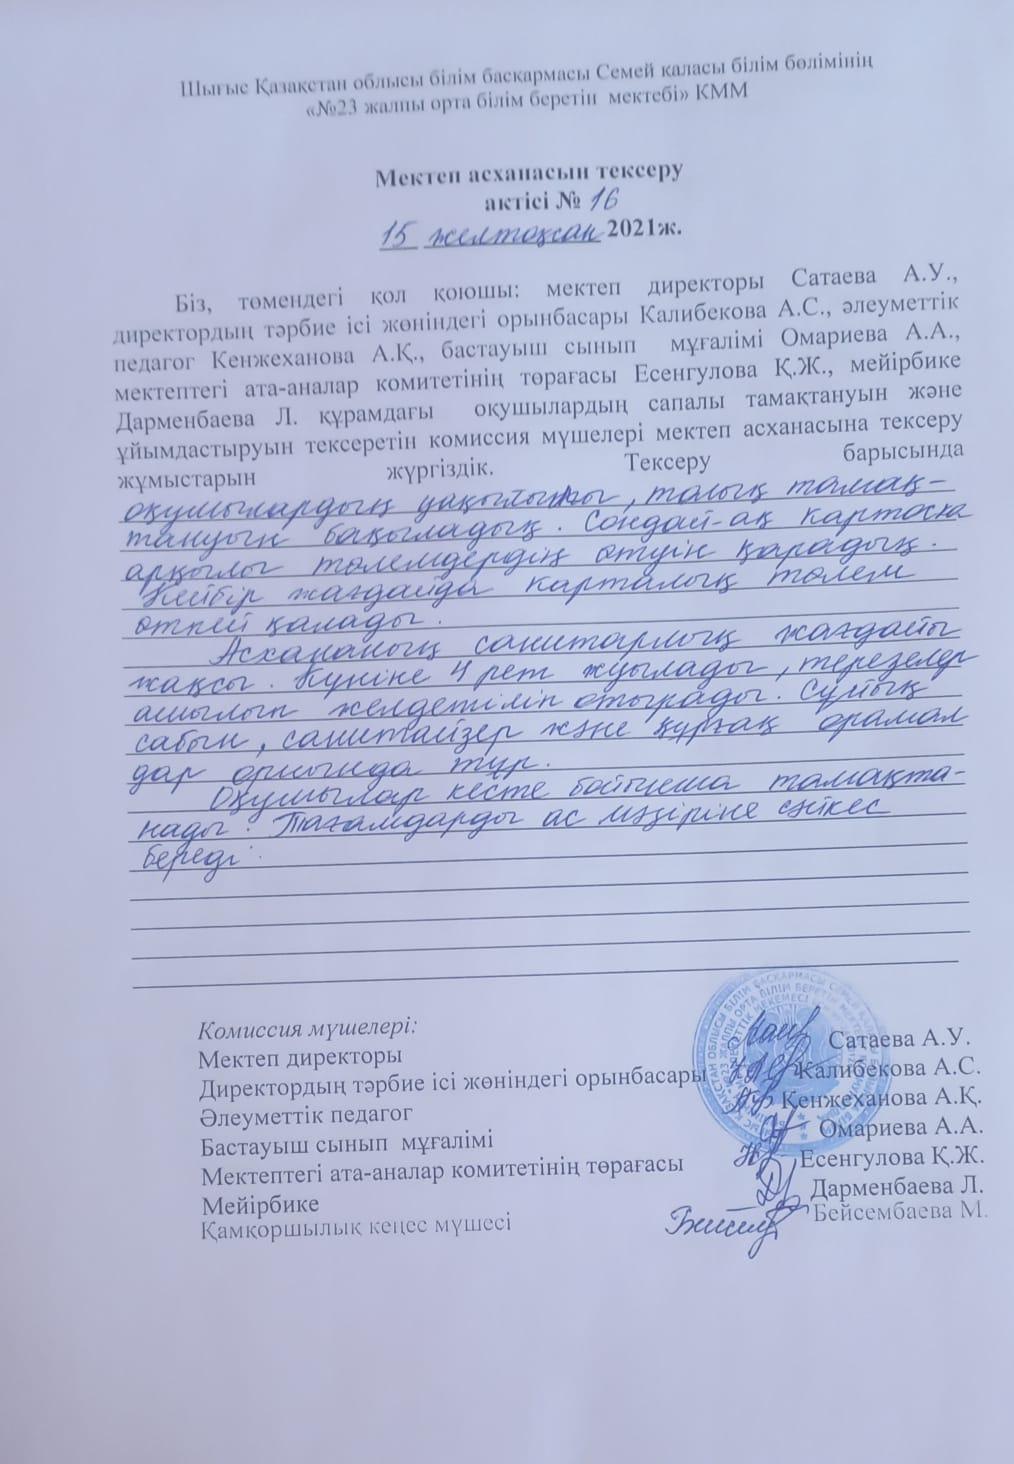 Шығыс Қазақстан облысы білім басқармасы Семей қаласы білім бөлімінің
«№23 жалпы орта білім беретін мектебі» КММ
Мектеп асханасын тексеру
актісі № 16
15 желтоқсан 2021ж.
Біз, төмендегі қол қоюшы: мектеп директоры Сатаева А.У.,
директордың тәрбие ісі жөніндегі орынбасары Калибекова А.С., әлеуметтік
педагог Кенжеханова А.Қ., бастауыш сынып мұғалімі Омариева А.А.,
мектептегі ата-аналар комитетінің төрағасы Есенгулова Қ.Ж., мейірбике
Дарменбаева Л. құрамдағы оқушылардың сапалы тамақтануын және
ұйымдастыруын тексеретін комиссия мүшелері мектеп асханасына тексеру
жұмыстарын жүргіздік. Тексеру барысында
оқушылардың уақытылы, толық тамақ-
тануын бақыладық. Сондай-ақ картосна
арқылы төлемдердің өтуін қарадық.
Кейбір жағдайда карталық төлем
өтпей қалады.
Асхананың санитарлық жағдайы
жақсы. Күніне 4 рет жуылады, терезелер
ашылып желдетіліп отырады. Сұйық
сабын, санитайзер және құрғақ орамал
дар орнында тұр.
Оқушылар кесте бойынша тамақта-
нады. Тағамдарды ас мәзіріне сәйкес
береді.
Комиссия мүшелері:
Мектеп директоры Сатаева А.У.
Директордың тәрбие ісі жөніндегі орынбасары Калибекова А.С.
Әлеуметтік педагог Кенжеханова А.Қ.
Бастауыш сынып мұғалімі Омариева А.А.
Мектептегі ата-аналар комитетінің төрағасы Есенгулова Қ.Ж.
Мейірбике Дарменбаева Л.
Қамқоршылық кеңес мүшесі Бейсембаева М.